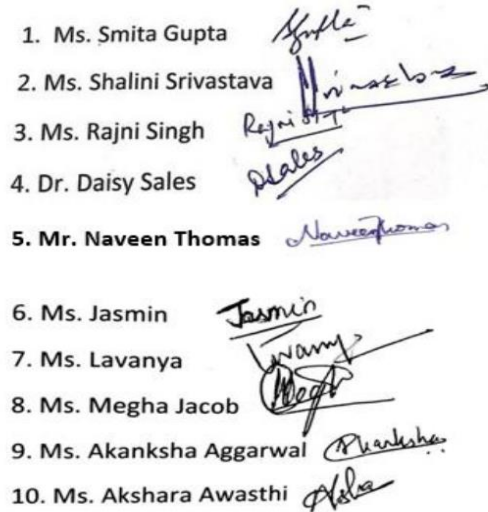 1. Ms. Smita Gupta Gupta
2. Ms. Shalini Srivastava
3. Ms. Rajni Singh Rajni
4. Dr. Daisy Sales DSales
5. Mr. Naveen Thomas NaveenThomas
6. Ms. Jasmin Jasmin
7. Ms. Lavanya
8. Ms. Megha Jacob Megha
9. Ms. Akanksha Aggarwal Akanksha
10. Ms. Akshara Awasthi